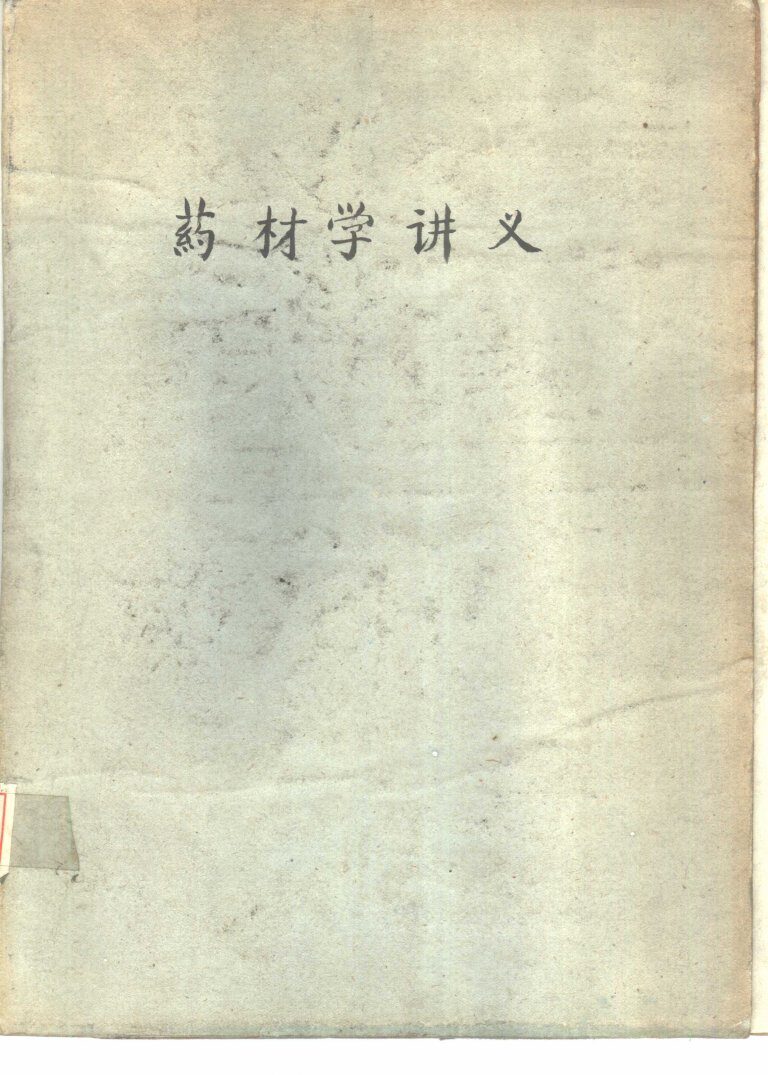 葯材学讲义